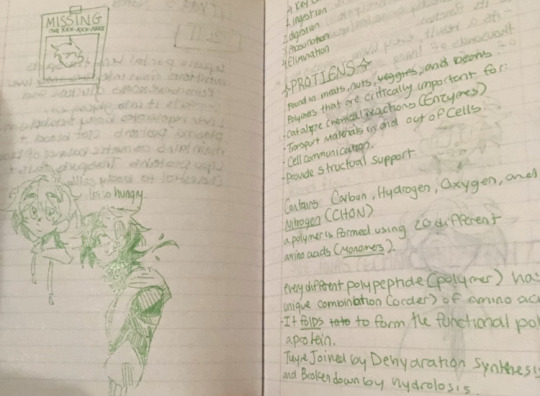 MISSING
I'm so hungry
1. Ingestion
2. Digestion
3. Absorption
4. Elimination
☆PROTIENS☆
Found in meats, nuts, veggies, and beans
Polymers that are critically important for:
• Catalyze chemical reactions (Enzymes)
• Transport Materials in and out of Cells.
• Cell communication.
• Provide structual support
Contains: Carbon, Hydrogen, Oxygen, and
Nitrogen (CHON)
a polymer is formed using 20 different
amino acids (Monomers)
every different polypeptide (polymer) has
unique combination (order) of amino
- It folds to form the functional
a protein.
They're Joined by Dehyaration Synthesis
and Broken down by hydrolosis.